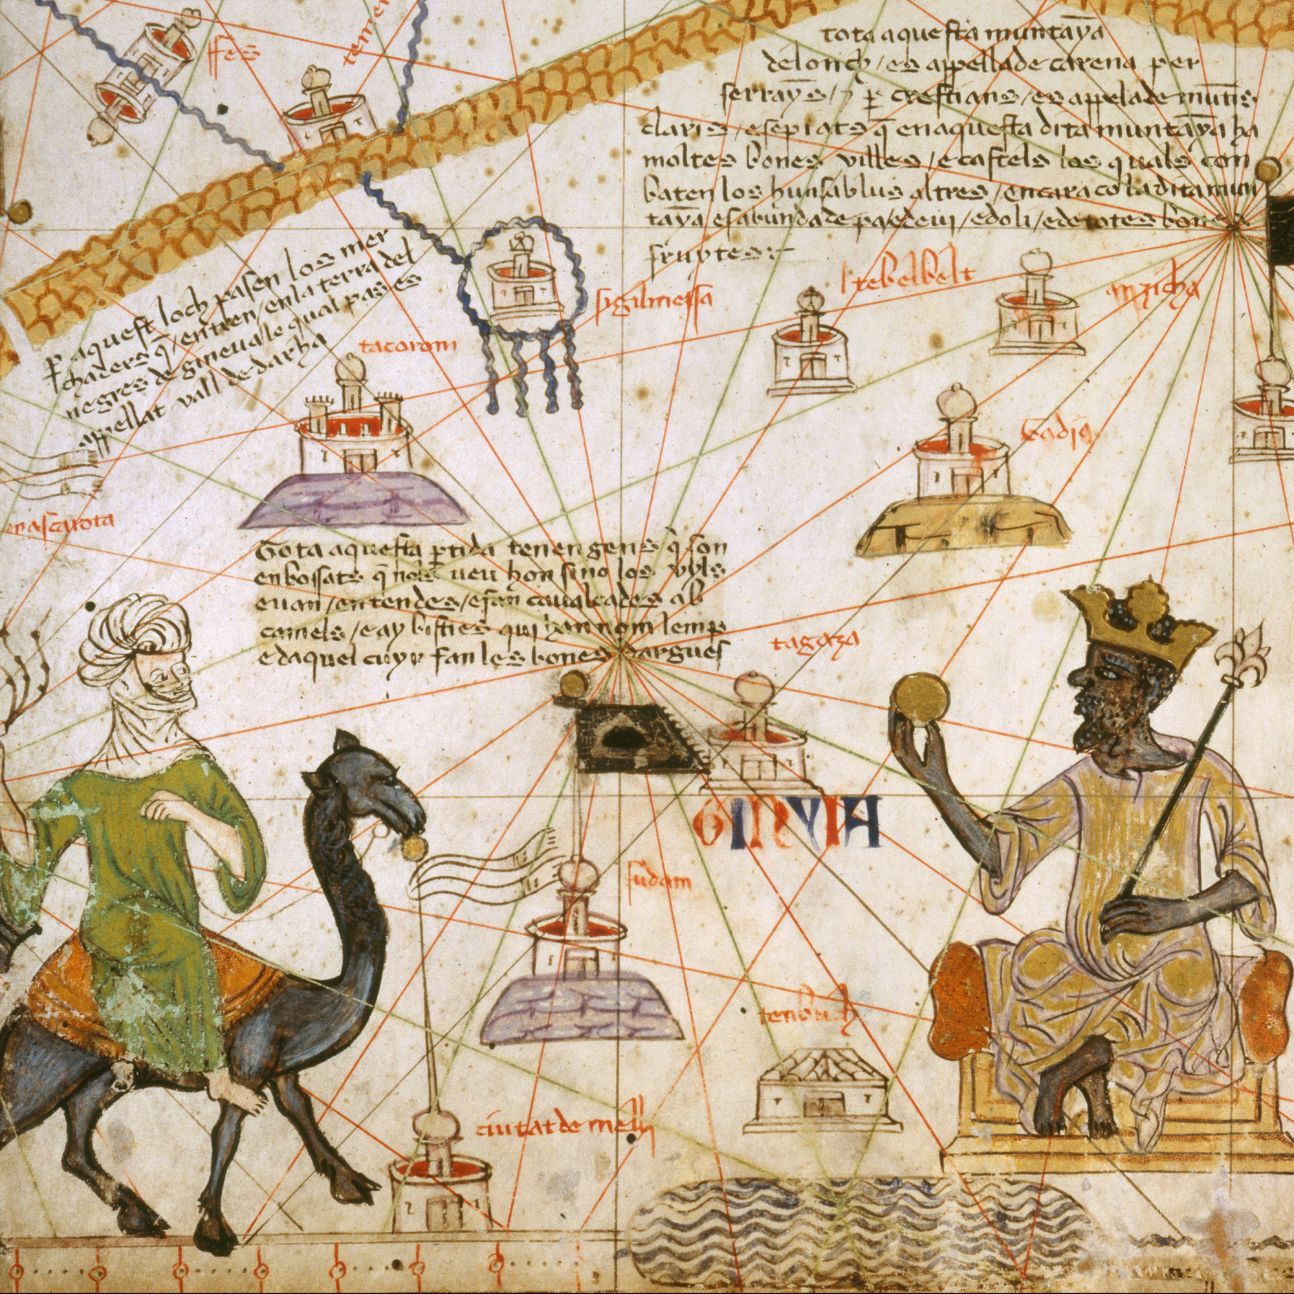 ffes
tota aquesta muntaya
de lonch / es appellade carena per
serrayns / e per crestians / es appelade muntis
claris / e sepiats q̄ en aquesta dita muntaya ha
moltes bones villes / e castels los quals con
baten los huns ab lus altres / encara co la dita mun
taya es abundade de pa e de vi / e doli / e de totes bones
fruytes
p̄ aquest loch pasen los mer
chaders q̄ entren en la terra del
negres de gineva le qual pas es
appellat vall de darha
sigilmessa
tacorom
tebelbelt
anzicha
mascarota
Tota aquesta ptida tenen gens q̄ son
enbossats q̄ nols veu hom sino los uyls
e van / en tendes / e fan cavalcades ab
camels / e ay bisties qui han nom lemp
e daquel cuyr fan les bones dargues
tagaza
GINYIA
sudam
tenbuch
ciutat de melli